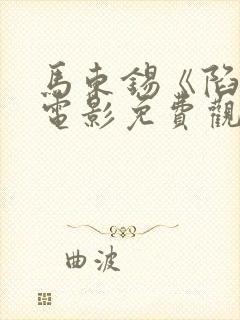 馬東錫《陷
電影免費觀
曲波